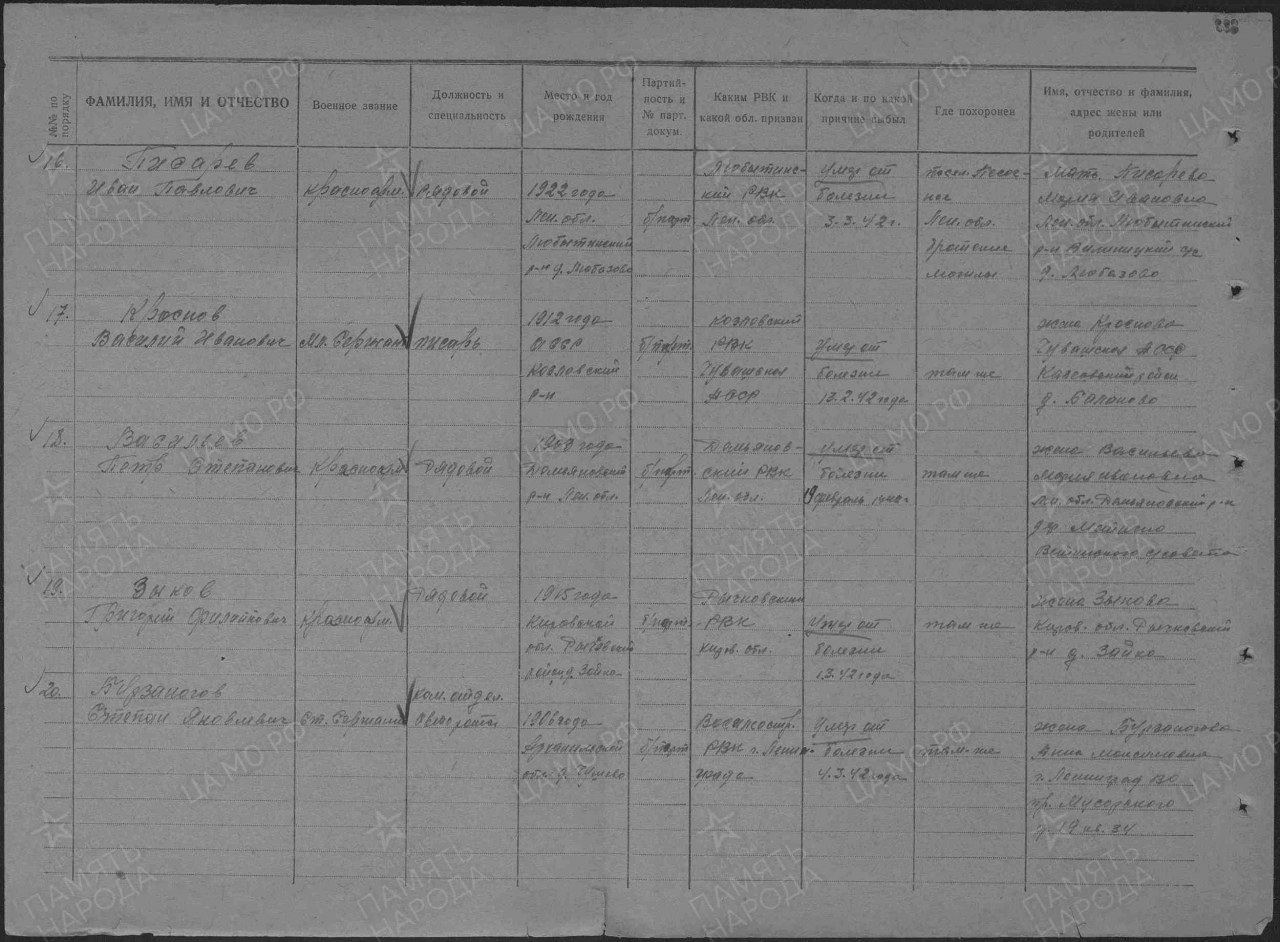 282
№№ по порядку
ФАМИЛИЯ, ИМЯ И ОТЧЕСТВО
Военное звание
Должность и специальность
Место и год рождения
Партийность и № парт. докум.
Каким РВК и какой обл. призван
Когда и по какой причине выбыл
Где похоронен
Имя, отчество и фамилия, адрес жены или родителей
16.
Писарев
Иван Павлович
Красноарм.
Рядовой
1922 года
Лен. обл.
Любытинский
р-н д.
б/парт.
Любытинс-
кий РВК
Лен. обл.
Умер от
болезни
3.3.42 г.
Лен. обл.
Братские
могилы
Мать Писарева
Мария Ивановна
Лен. обл. Любытинский
р-н
д.
17.
Краснов
Василий Иванович
Мл. Сержант
писарь
1912 года
АССР
Козловский
р-н
б/парт.
Козловский
РВК
Чувашская
АССР
Умер от
болезни
13.2.42 года
там же
жена Краснова
Чувашская АССР
д.
18.
Васильев
Петр Степанович
Красноарм.
Рядовой
1908 года
Демянский
р-н Лен. обл.
б/парт.
Демянов-
ский РВК
Лен. обл.
Умер от
болезни
19 февраль
там же
жена Васильева
Мария Ивановна
Лен. обл.
19.
Зыков
Григорий Филиппович
Красноарм.
Рядовой
1915 года
Кировской
обл.
район д. Зайка
б/парт.
РВК
Киров. обл.
Умер от
болезни
1.3.42 года
там же
жена Зыкова
Киров. обл.
р-н д. Зайка
20.
Бурзаногов
Степан Яковлевич
Ст. Сержант
ком. отдел.
1906 года
Архангельской
обл. д.
б/парт
Василеостр.
РВК г. Ленин-
града
Умер от
болезни
4.3.42 года
там-же
жена
Анна
г. Ленинград ВО
пр. Мусорского
д. 19 кв. 34
ПАМЯТЬ НАРОДА
ЦАМО.РФ